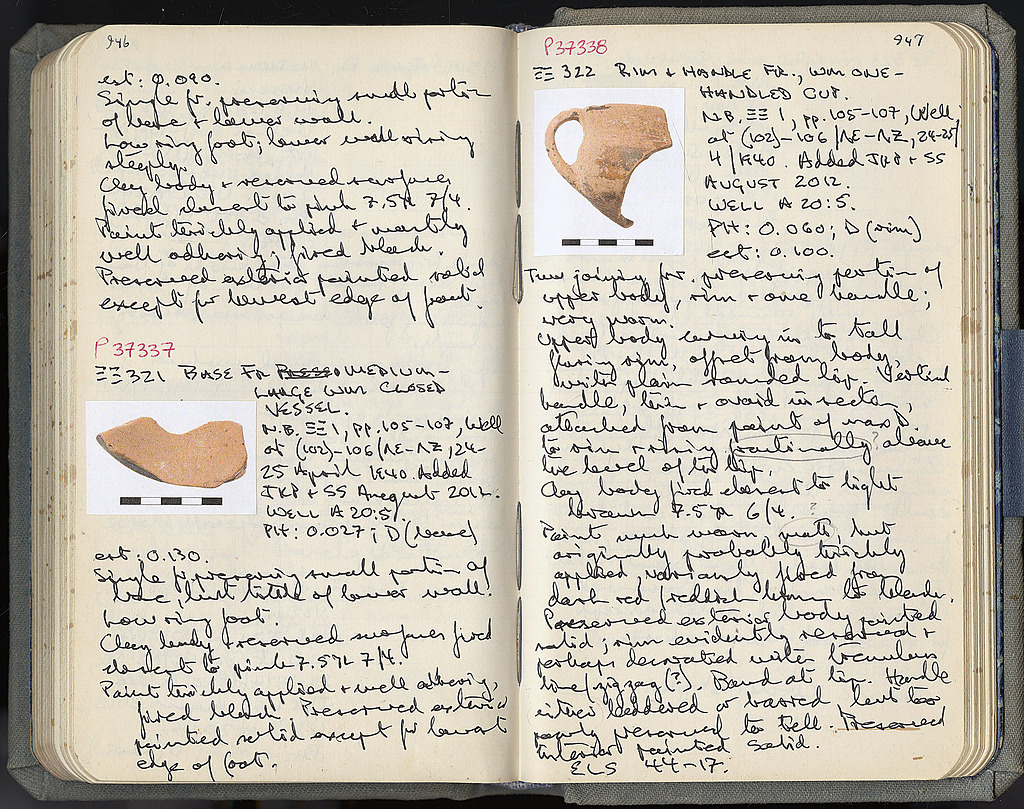 946
est: 0.090.
Single fr. preserving small portion
of base + lower wall.
Low ring foot; lower wall rising
steeply.
Clay body + reserved surfaces
fired closest to pink 7.5YR 7/4.
Paint thickly applied + mostly
well adhering; fired black.
Preserved exterior painted solid
except for lowest edge of foot.
P 37337
ΞΞ 321 BASE FR MEDIUM-
LARGE WM CLOSED
VESSEL.
N.B. ΞΞ 1, pp. 105-107, Well
at (102)-106/ΝΕ-ΝΖ, 24-
25 April 1940. Added
JKP + SS August 2012.
WELL A 20:5.
PH: 0.027; D (base)
est: 0.130.
Single fr preserving small portion of
base, but little of lower wall.
Low ring foot.
Clay body + reserved surfaces fired
closest to pink 7.5YR 7/4.
Paint thickly applied + well adhering,
fired black. Preserved exterior
painted solid except for lowest
edge of foot.
947
P37338
ΞΞ 322 RIM + HANDLE FR., WM ONE-
HANDLED CUP.
N.B. ΞΞ 1, pp. 105-107, Well
at (102)-106/ΝΕ-ΝΖ, 24-25/
4/1940. Added JKP + SS
AUGUST 2012.
WELL A 20:5.
PH: 0.060; D (rim)
est: 0.100.
Two joining frr. preserving portion of
upper body, rim + one handle;
very worn.
Upper body curving in to tall
flaring rim, offset from body,
with plain rounded lip. Vertical
handle, thin + ovoid in section,
attached from point of max D.
to rim + rising fractionally? above
the level of the lip.
Clay body fired closest to light
brown 7.5YR 6/4.
Paint much worn, matt?, but
originally probably thickly
applied, variously fired from
dark red/reddish brown to black.
Preserved exterior body painted
solid; rim evidently reserved +
perhaps decorated with tremulous
line/zigzag (?). Band at lip. Handle
either laddered or barred, but too
poorly preserved to tell. Preserved
interior painted solid.
ELS 44-17.